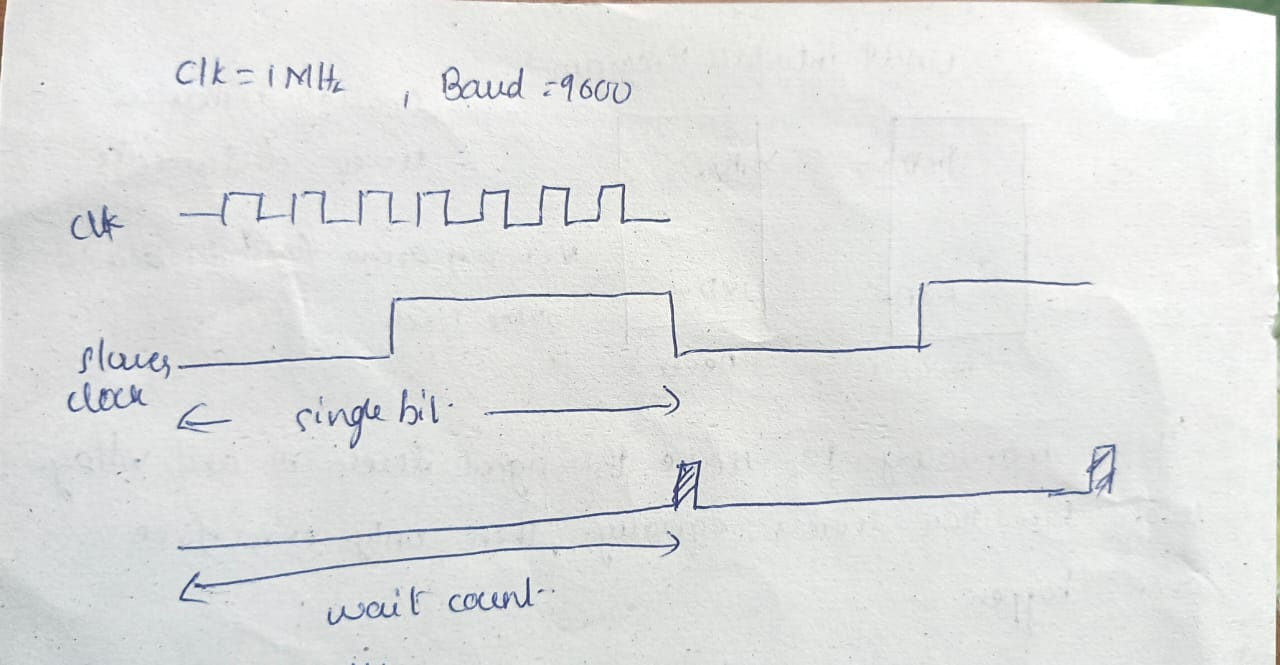 Clk = 1 MHz , Baud = 9600
Clk
slower
clock
single bit.
wait count.